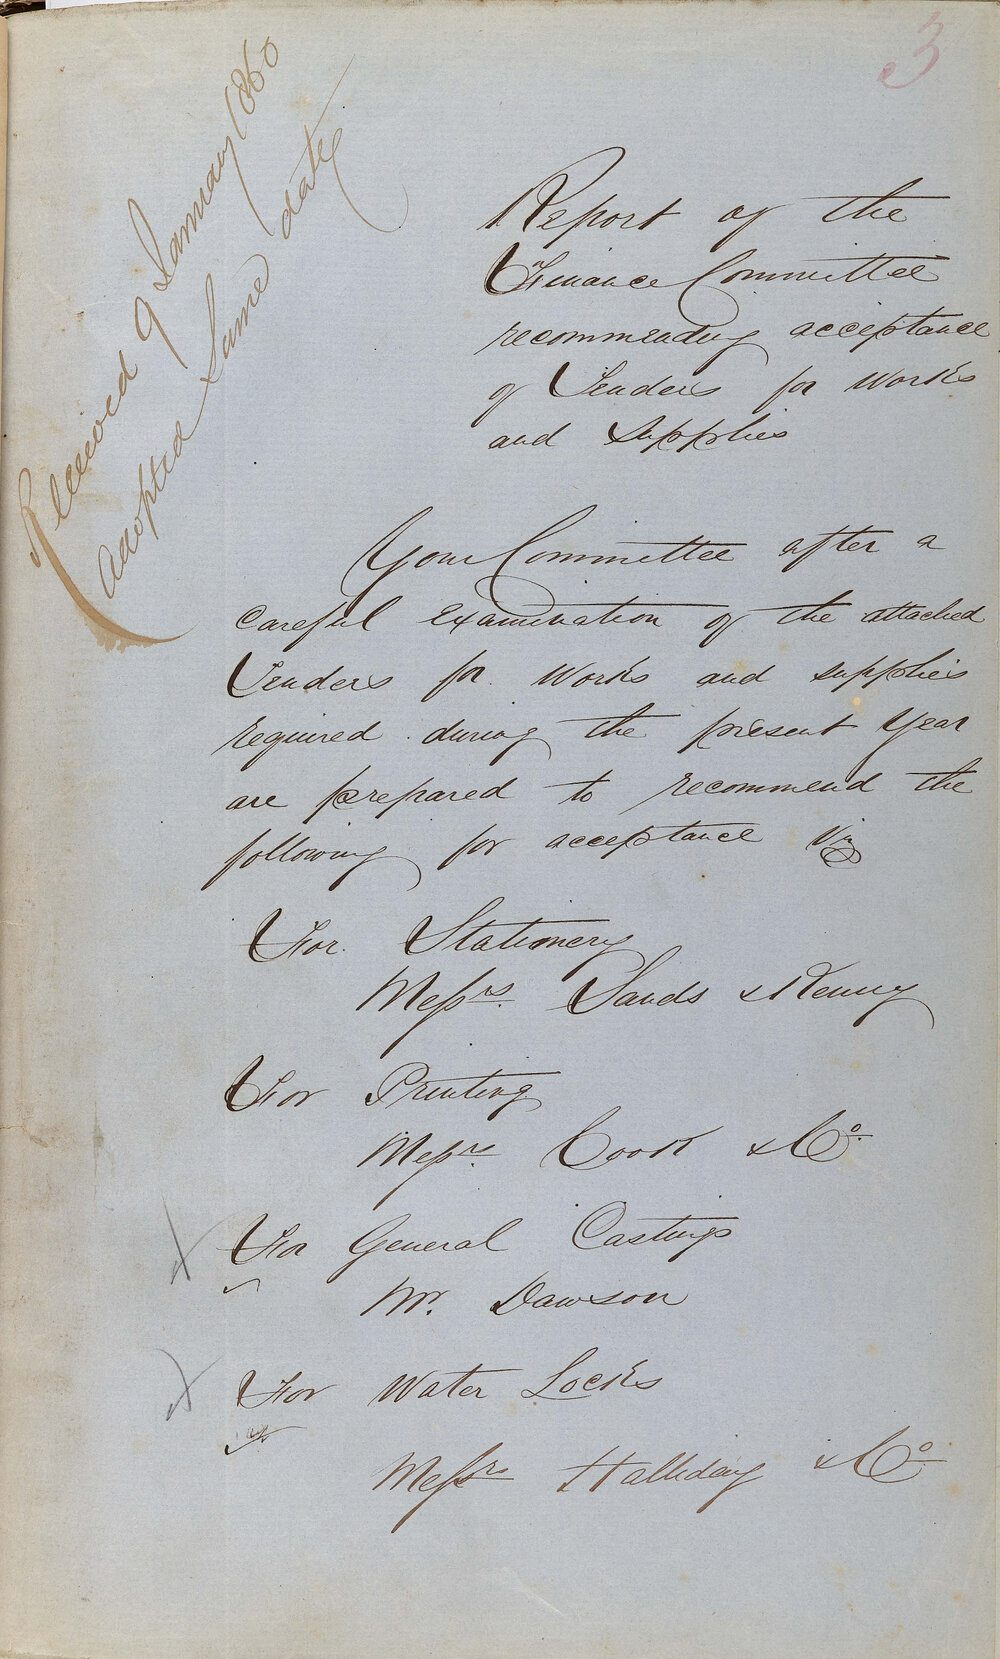 3
Received 9 January 1860
Adopted Same date
Report of the
Finance Committee
recommending acceptance
of Tenders for Works
and Supplies
Your Committee after a
careful examination of the attached
Tenders for Works and supplies
required during the present Year
are prepared to recommend the
following for acceptance Viz
For Stationery
Messrs. Sands & Kenny
For Printing
Messrs. Cook & Co.
For General Castings
Mr. Dawson
For Water Locks
Messrs Halliday & Co